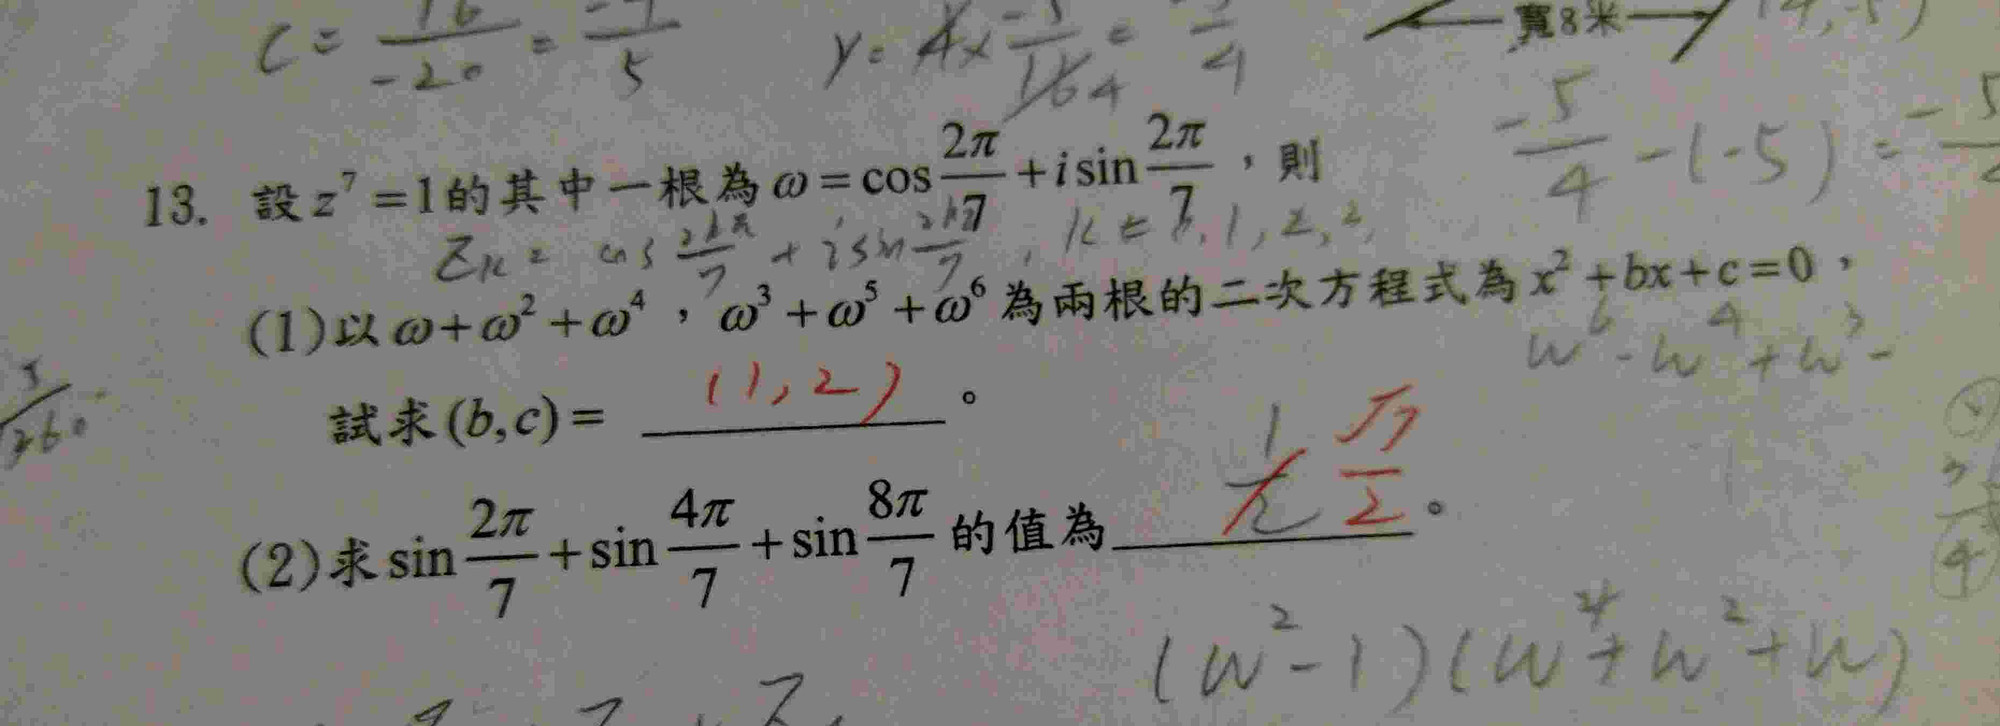 C = 16/-20 = -4/5
寬8米
-5/4 - (-5) =
13. 設 z⁷ = 1 的其中一根為 ω = cos 2π/7 + i sin 2π/7,則
Zₖ = cos 2kπ/7 + i sin 2kπ/7, k = 0, 1, 2,
(1)以 ω + ω² + ω⁴,ω³ + ω⁵ + ω⁶ 為兩根的二次方程式為 x² + bx + c = 0,
w⁶ - w⁴ + w³ -
試求(b, c) = (1, 2)。
(2)求 sin 2π/7 + sin 4π/7 + sin 8π/7 的值為 1/2 √7/2。
(w² - 1)(w⁴ + w² + w)